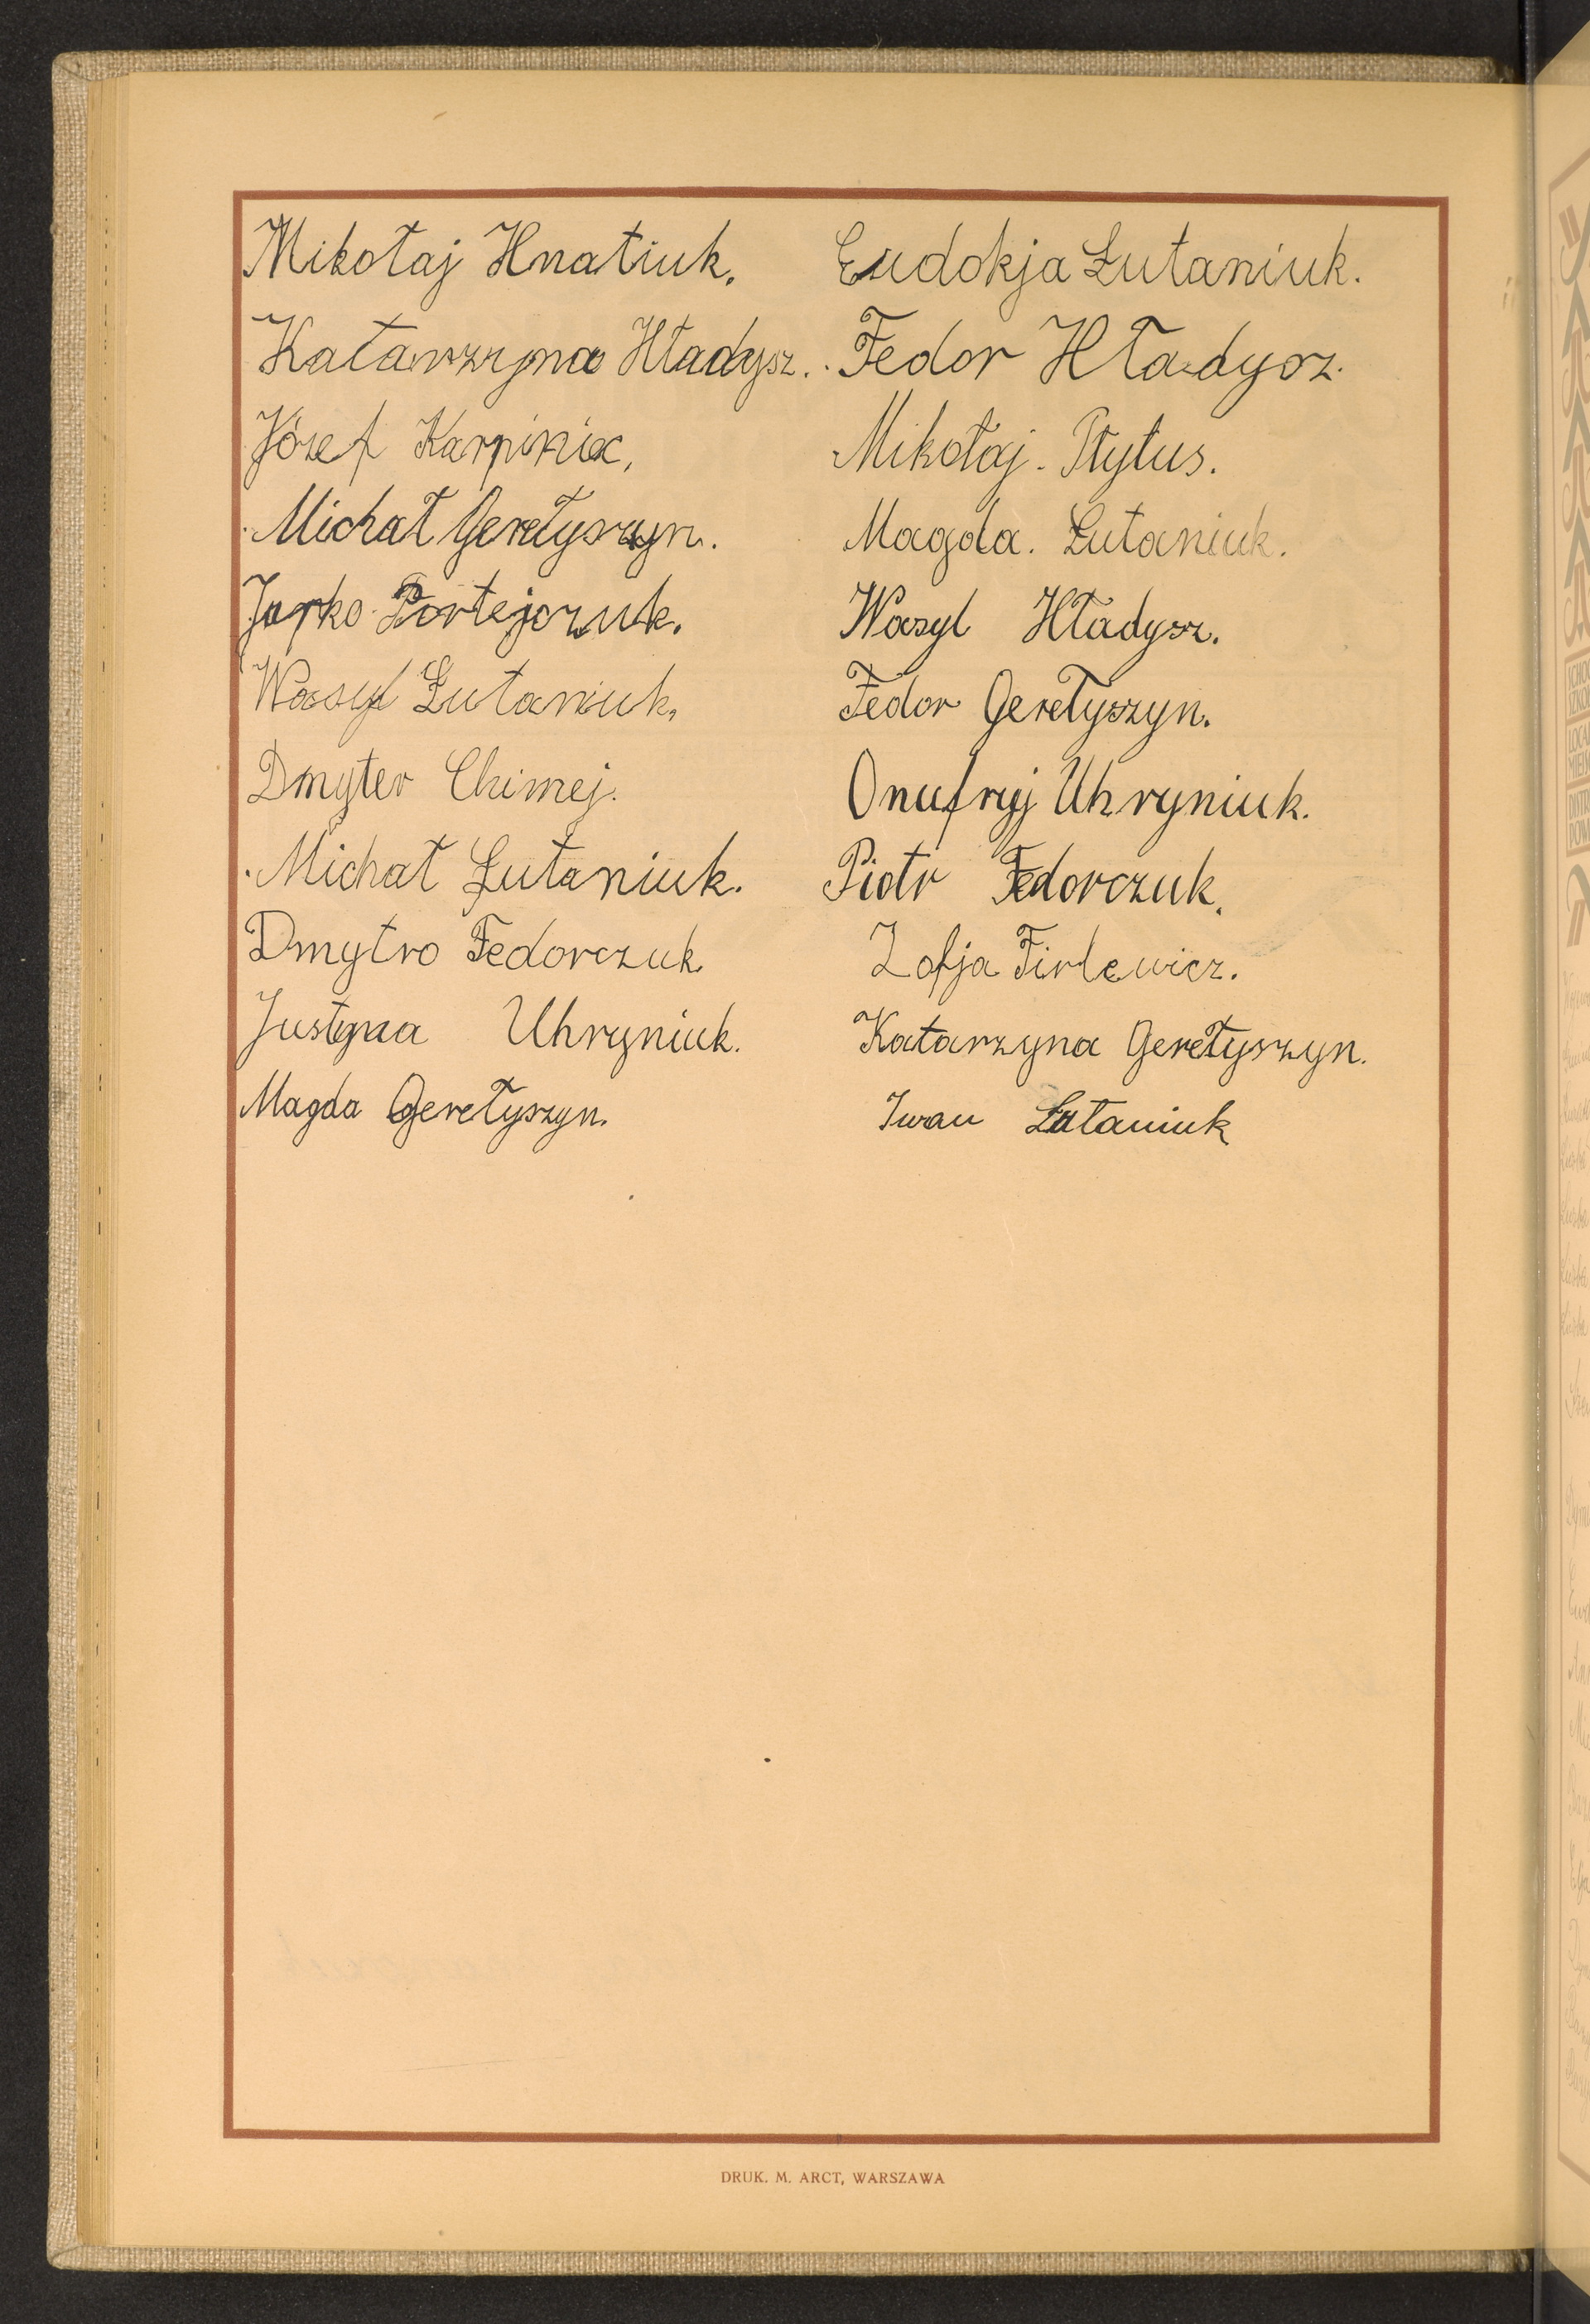 Mikołaj Hnatiuk. Eudokja Łutaniuk.
Katarzyna Hładysz. Fedor Hładysz.
Józef Karpiniec, Mikołaj. Ptytus.
Michał Geretyszyn. Magda. Łutaniuk.
Jurko Portejczuk. Wasyl Hładysz.
Wasyl Łutaniuk. Fedor Gerełyszyn.
Dmyter Chimej. Onufryj Uhryniuk.
Michał Łutaniuk. Piotr Fedorczuk.
Dmytro Fedorczuk Zofja Firlewicz.
Justyna Uhryniuk. Katarzyna Gerełyszyn.
Magda Gerełyszyn. Iwan Łutaniuk
DRUK. M. ARCT, WARSZAWA